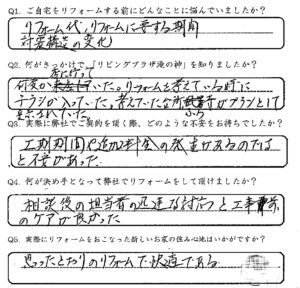 Q1. ご自宅をリフォームする前にどんなことに悩んでいましたか?
リフォーム代、リフォームに要する期間
対震構造の変化
Q2. 何がきっかけで、「リビングプラザ滝の神」を知りましたか?
チラシが入っていた。考えていた
Q3. 実際に弊社でご契約を頂く際、どのような不安をお持ちでしたか?
工期期間や追加料金の発生があるのでは
と不安があった
Q4. 何が決め手となって弊社でリフォームをして頂けましたか?
相談後の担当者の迅速な対応と工事
のケアが良かった
Q5. 実際にリフォームをおこなった新しいお家の住み心地はいかがですか?
思ったとおりのリフォームで快適である